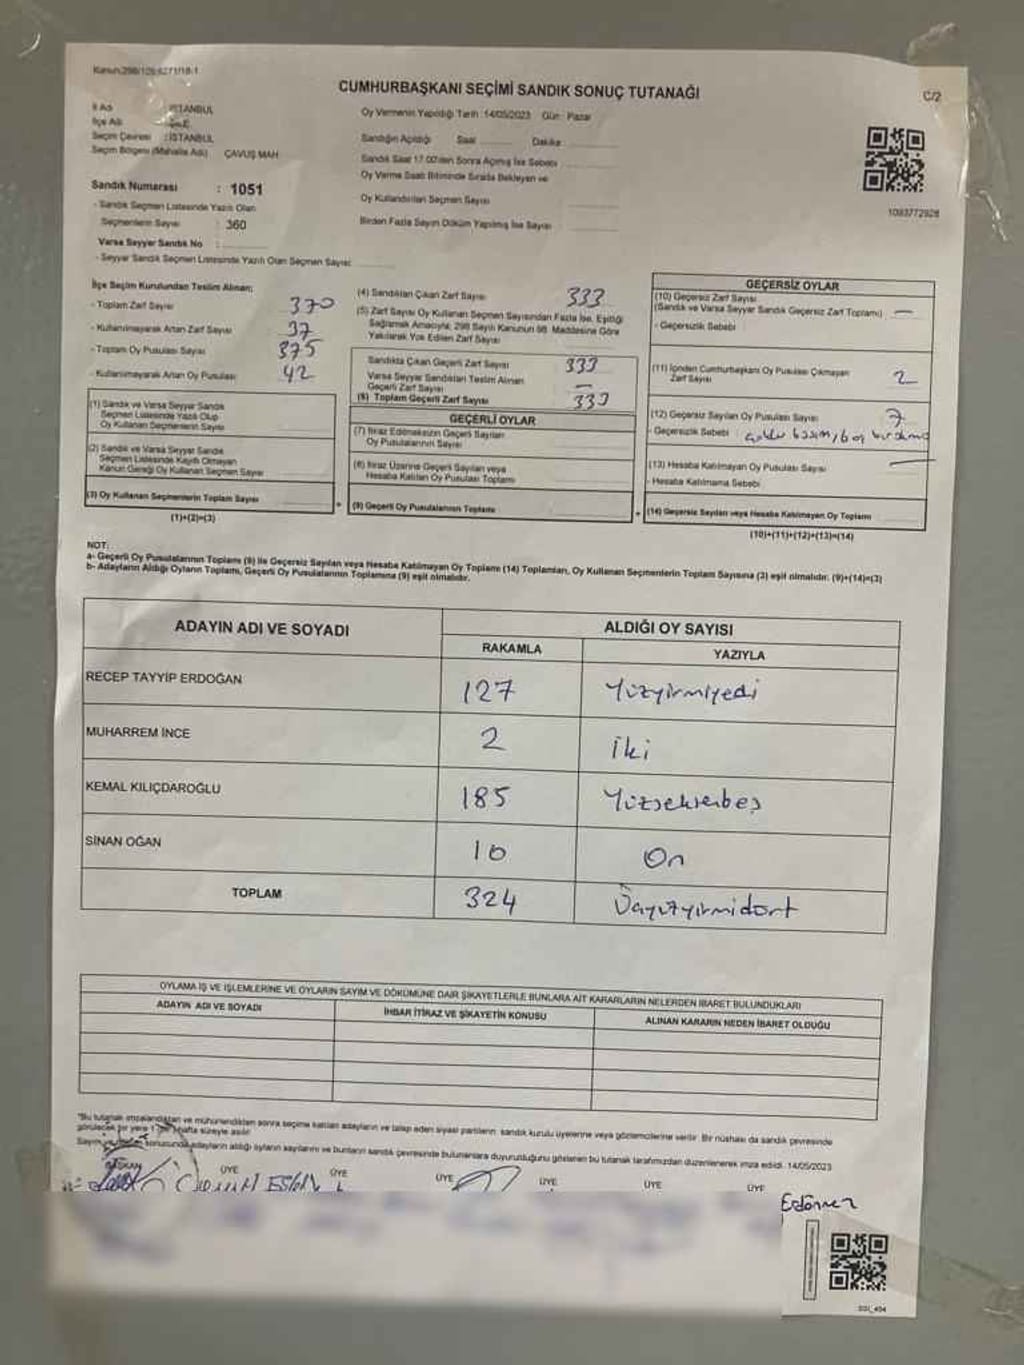 Kanun:298/129,6271/18-1
CUMHURBAŞKANI SEÇİMİ SANDIK SONUÇ TUTANAĞI
C/2
İl Adı : İSTANBUL
İlçe Adı
Seçim Çevresi : İSTANBUL
Seçim Bölgesi (Mahalle Adı) ÇAVUŞ MAH
Sandık Numarası : 1051
- Sandık Seçmen Listesinde Yazılı Olan
Seçmenlerin Sayısı 360
Varsa Seyyar Sandık No :
- Seyyar Sandık Seçmen Listesinde Yazılı Olan Seçmen Sayısı:
Oy Vermenin Yapıldığı Tarih : 14/05/2023 Gün : Pazar
Sandığın Açıldığı Saat Dakika
Sandık Saat 17.00'den Sonra Açılmış İse Sebebi
Oy Verme Saati Bitiminde Sırada Bekleyen ve
Oy Kullandırılan Seçmen Sayısı
Birden Fazla Sayım Döküm Yapılmış İse Sayısı
1093772928
İlçe Seçim Kurulundan Teslim Alınan;
- Toplam Zarf Sayısı 370
- Kullanılmayarak Artan Zarf Sayısı 37
- Toplam Oy Pusulası Sayısı 375
- Kullanılmayarak Artan Oy Pusulası 42
(1) Sandık ve Varsa Seyyar Sandık
Seçmen Listesinde Yazılı Olup
Oy Kullanan Seçmenlerin Sayısı
(2) Sandık ve Varsa Seyyar Sandık
Seçmen Listesinde Kayıtlı Olmayan
Kanun Gereği Oy Kullanan Seçmen Sayısı
(3) Oy Kullanan Seçmenlerin Toplam Sayısı
(1)+(2)=(3)
(4) Sandıktan Çıkan Zarf Sayısı 333
(5) Zarf Sayısı Oy Kullanan Seçmen Sayısından Fazla İse, Eşitliği
Sağlamak Amacıyla; 298 Sayılı Kanunun 98. Maddesine Göre
Yakılarak Yok Edilen Zarf Sayısı
Sandıkta Çıkan Geçerli Zarf Sayısı 333
Varsa Seyyar Sandıktan Teslim Alınan
Geçerli Zarf Sayısı –
(6) Toplam Geçerli Zarf Sayısı 333
GEÇERLİ OYLAR
(7) İtiraz Edilmeksizin Geçerli Sayılan
Oy Pusulalarının Sayısı
(8) İtiraz Üzerine Geçerli Sayılan veya
Hesaba Katılan Oy Pusulası Toplamı
(9) Geçerli Oy Pusulalarının Toplamı
GEÇERSİZ OYLAR
(10) Geçersiz Zarf Sayısı
(Sandık ve Varsa Seyyar Sandık Geçersiz Zarf Toplamı) —
- Geçersizlik Sebebi
(11) İçinden Cumhurbaşkanı Oy Pusulası Çıkmayan
Zarf Sayısı 2
(12) Geçersiz Sayılan Oy Pusulası Sayısı 7
- Geçersizlik Sebebi :
(13) Hesaba Katılmayan Oy Pusulası Sayısı —
- Hesaba Katılmama Sebebi
(14) Geçersiz Sayılan veya Hesaba Katılmayan Oy Toplamı
(10)+(11)+(12)+(13)=(14)
NOT:
a- Geçerli Oy Pusulalarının Toplamı (9) ile Geçersiz Sayılan veya Hesaba Katılmayan Oy Toplamı (14) Toplamları, Oy Kullanan Seçmenlerin Toplam Sayısına (3) eşit olmalıdır. (9)+(14)=(3)
b- Adayların Aldığı Oyların Toplamı, Geçerli Oy Pusulalarının Toplamına (9) eşit olmalıdır.
ADAYIN ADI VE SOYADI ALDIĞI OY SAYISI
RAKAMLA YAZIYLA
RECEP TAYYİP ERDOĞAN 127 Yüzyirmiyedi
MUHARREM İNCE 2 iki
KEMAL KILIÇDAROĞLU 185 Yüzseksenbeş
SİNAN OĞAN 10 On
TOPLAM 324 Üçyüzyirmidört
OYLAMA İŞ VE İŞLEMLERİNE VE OYLARIN SAYIM VE DÖKÜMÜNE DAİR ŞİKAYETLERLE BUNLARA AİT KARARLARIN NELERDEN İBARET BULUNDUKLARI
ADAYIN ADI VE SOYADI İHBAR İTİRAZ VE ŞİKAYETİN KONUSU ALINAN KARARIN NEDEN İBARET OLDUĞU
*Bu tutanak imzalandıktan ve mühürlendikten sonra seçime katılan adayların ve talep eden siyasi partilerin sandık kurulu üyelerine veya gözlemcilerine verilir. Bir nüshası da sandık çevresinde
görülecek bir yere 1 hafta süreyle asılır.
Sayım konusunda adayların aldığı oyların sayılarını ve bunların sandık çevresinde bulunanlara duyurulduğunu gösteren bu tutanak tarafımızdan düzenlenerek imza edildi. 14/05/2023
ÜYE ÜYE ÜYE ÜYE ÜYE ÜYE